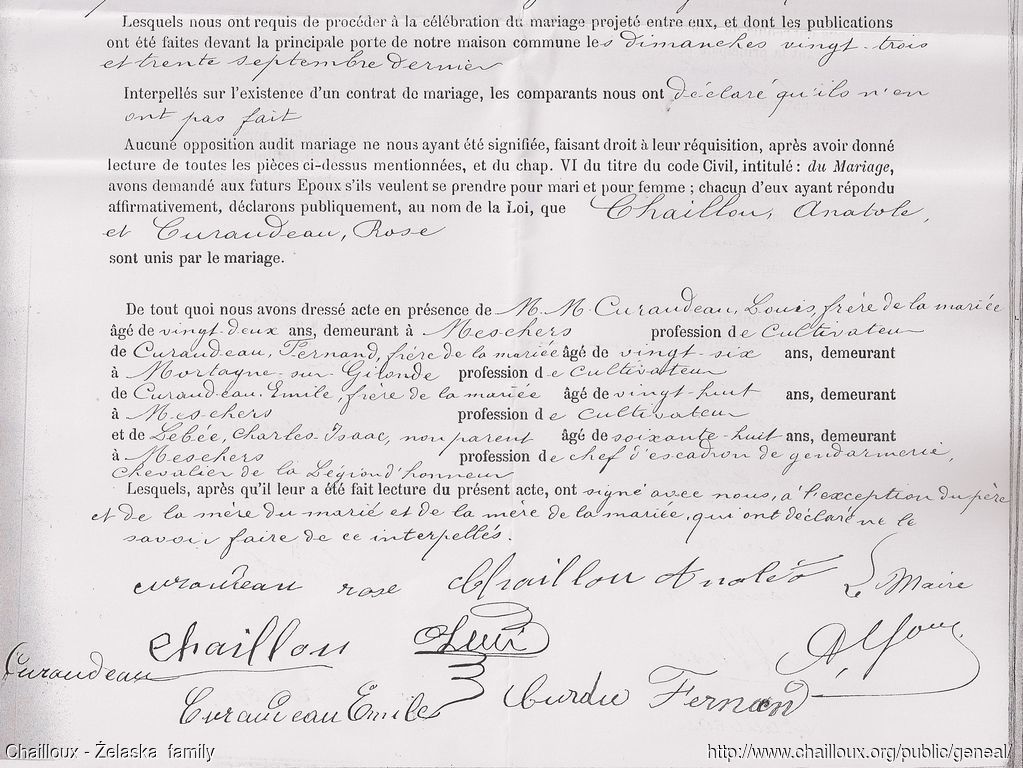 Lesquels nous ont requis de procéder à la célébration du mariage projeté entre eux, et dont les publications
ont été faites devant la principale porte de notre maison commune les dimanches vingt-trois
et trente septembre dernier
Interpellés sur l'existence d'un contrat de mariage, les comparants nous ont déclaré qu'ils n'en
ont pas fait
Aucune opposition audit mariage ne nous ayant été signifiée, faisant droit à leur réquisition, après avoir donné
lecture de toutes les pièces ci-dessus mentionnées, et du chap. VI du titre du code Civil, intitulé : du Mariage,
avons demandé aux futurs Epoux s'ils veulent se prendre pour mari et pour femme ; chacun d'eux ayant répondu
affirmativement, déclarons publiquement, au nom de la Loi, que Chaillou, Anatole,
et Curaudeau, Rose
sont unis par le mariage.
De tout quoi nous avons dressé acte en présence de M. M. Curaudeau, Louis, frère de la mariée
âgé de vingt-deux ans, demeurant à Meschers profession de cultivateur
de Curaudeau, Fernand, frère de la mariée âgé de vingt-six ans, demeurant
à Mortagne-sur-Gironde profession de cultivateur
de Curaudeau Emile, frère de la mariée âgé de vingt-huit ans, demeurant
à Meschers profession de cultivateur
et de Lebée, Charles-Isaac, non parent âgé de soixante-huit ans, demeurant
à Meschers profession de chef d'escadron de gendarmerie,
chevalier de la Légion d'honneur
Lesquels, après qu'il leur a été fait lecture du présent acte, ont signé avec nous, à l'exception du père
et de la mère du marié et de la mère de la mariée, qui ont déclaré ne le
savoir faire de ce interpellés.
curaudeau rose Chaillou Anatole Le Maire
chaillou
Curaudeau
Curaudeau Emile Fernand
Chailloux - Żelaska family
http://www.chailloux.org/public/geneal/